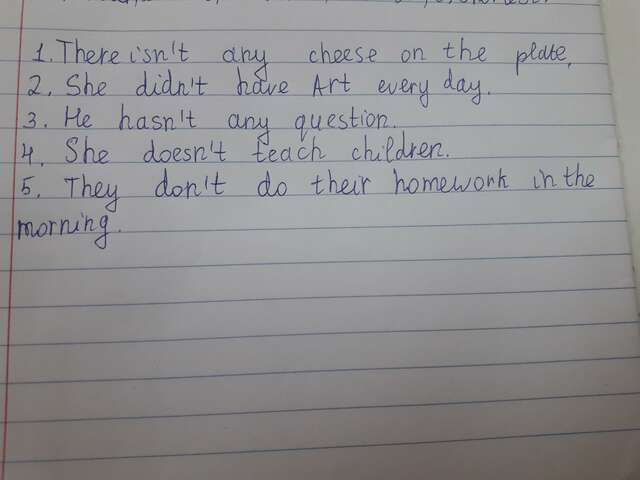 1. There isn't any cheese on the plate.
2. She didn't have Art every day.
3. He hasn't any question.
4. She doesn't teach children.
5. They don't do their homework in the
morning.